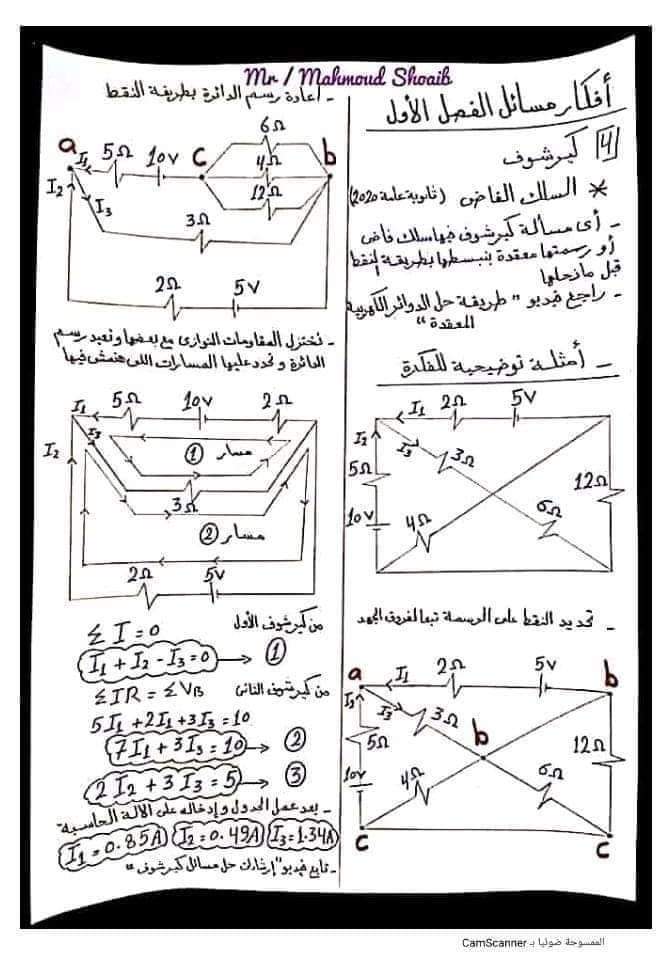 Mr / Mahmoud Shoaib
أفكار مسائل الفصل الأول
4 كيرشوف
* السلك الفاضى (ثانوية عامة 2020)
- أى مسألة كيرشوف فيها سلك فاضى
أو رسمتها معقدة بنبسطها بطريقة النقط
قبل مانحلها
- راجع فيديو " طريقة حل الدوائر الكهربية
المعقدة "
- أمثلة توضيحية للفكرة
I₁ 2Ω 5V
I₂ I₃ 3Ω
5Ω 12Ω
10V 4Ω 6Ω
- تحديد النقط على الرسمة تبعا لفروق الجهد
a I₁ 2Ω 5V b
I₂ I₃ 3Ω b
5Ω 12Ω
10V 4Ω 6Ω
c c
- إعادة رسم الدائرة بطريقة النقط
6Ω
a I₁ 5Ω 10V c 4Ω b
I₂ I₃ 12Ω
3Ω
2Ω 5V
- نختزل المقاومات التوازى مع بعضها ونعيد رسم
الدائرة ونحدد عليها المسارات اللى هنمشى فيها
I₁ 5Ω 10V 2Ω
I₂ I₃ مسار 1
3Ω
مسار 2
2Ω 5V
من كيرشوف الأول Σ I = 0
I₁ + I₂ - I₃ = 0 → 1
من كيرشوف الثانى ΣIR = ΣV_B
5I₁ + 2I₁ + 3I₃ = 10
7I₁ + 3I₃ = 10 → 2
2I₂ + 3I₃ = 5 → 3
- بعد عمل الجدول وإدخاله على الآلة الحاسبة
I₁ = 0.85A I₂ = 0.49A I₃ = 1.34A
- تابع فيديو " إرشادات حل مسائل كيرشوف "
الممسوحة ضوئيا بـ CamScanner